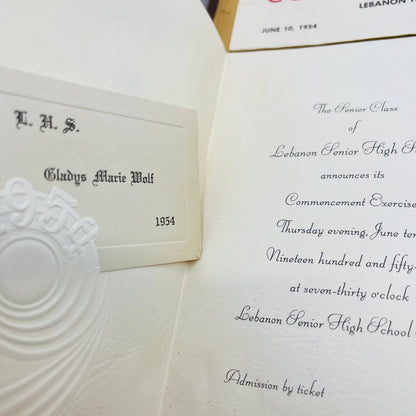 LEBANON
JUNE 10, 1954
L. H. S.
Gladys Marie Wolf
1954
1954
The Senior Class
of
Lebanon Senior High
announces its
Commencement
Thursday evening, June
Nineteen hundred and
at seven-thirty o'clock
Lebanon Senior High School
Admission by ticket